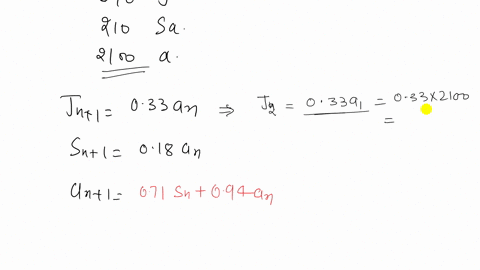 210 Sa.
2100 a.
Jn+1 = 0.33 an ⇒ J2 = 0.33a1 = 0.33×2100
=
Sn+1 = 0.18 an
an+1 = 071 Sn + 0.94 an